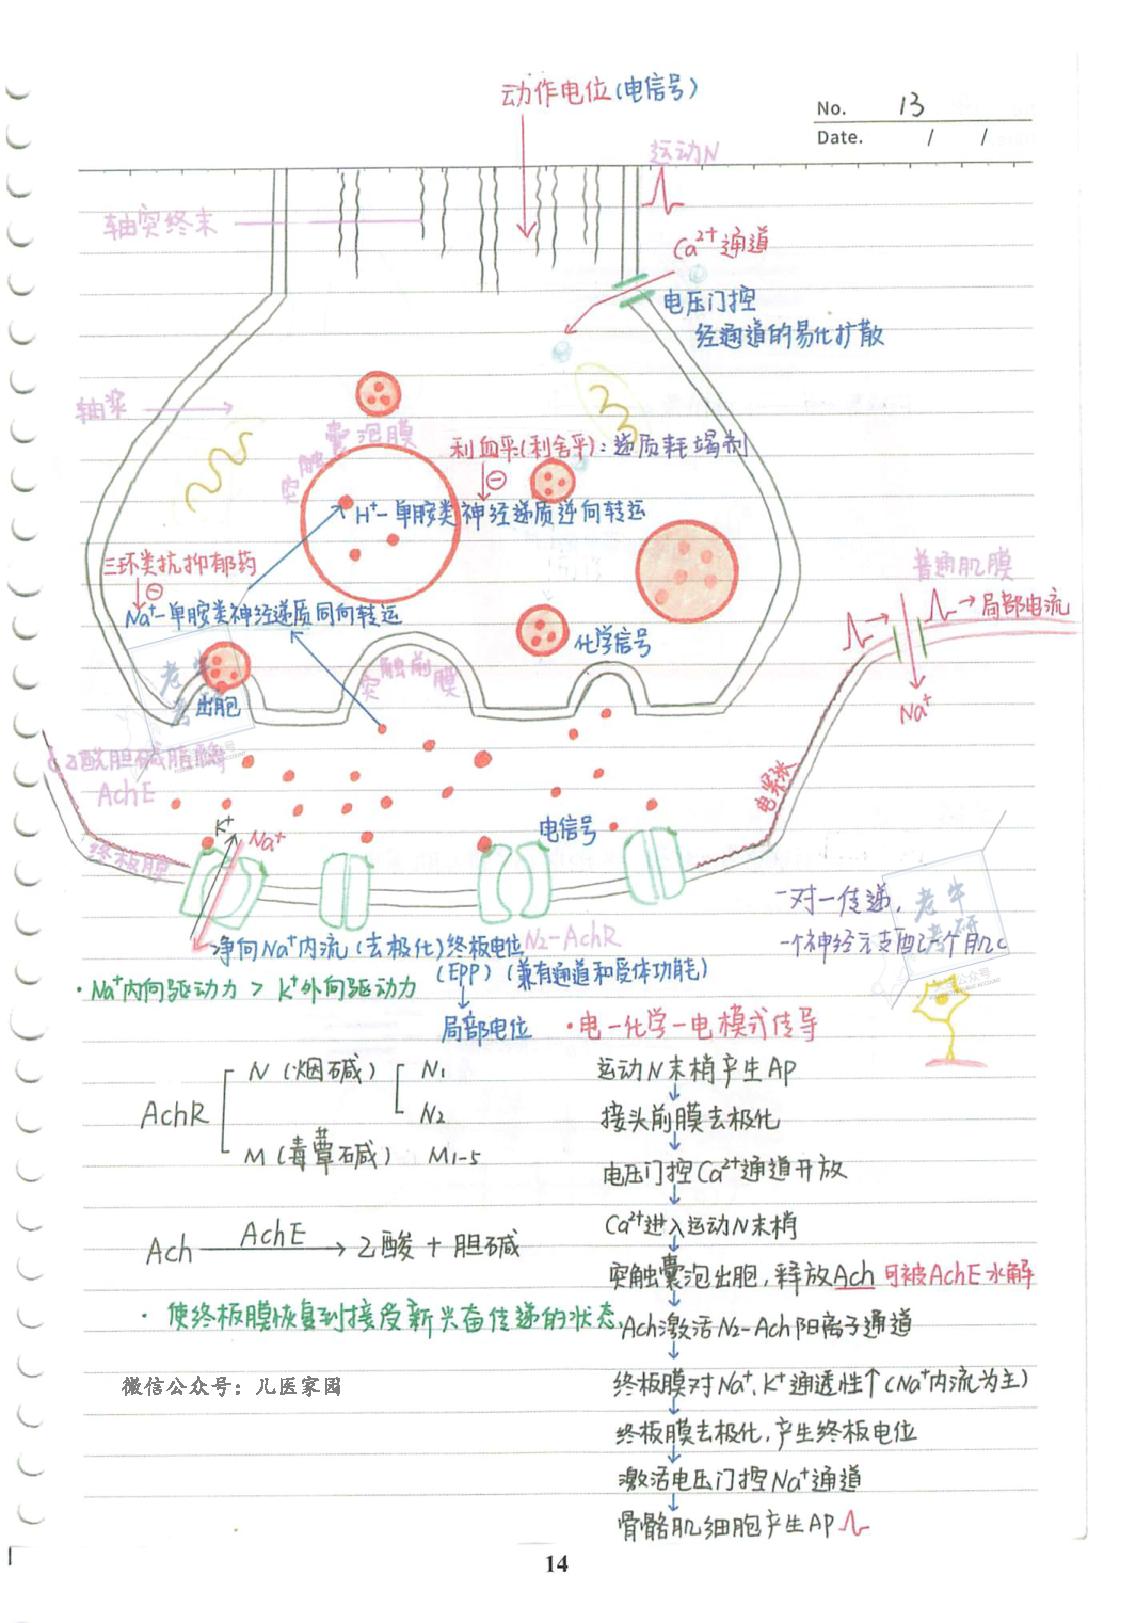 动作电位(电信号)
No. 13
Date. / /
运动N
轴突终末
Ca²⁺通道
电压门控
经通道的易化扩散
轴浆
突触囊泡膜
利血平(利舍平):递质耗竭剂
⊖
H⁺-单胺类神经递质逆向转运
三环类抗抑郁药
⊖
Na⁺-单胺类神经递质同向转运
普通肌膜
→局部电流
化学信号
突触前膜
Na⁺
出胞
乙酰胆碱酯酶
AchE
电紧张
K⁺
Na⁺
电信号
终板膜
一对一传递,
一个神经元支配一个肌c
净向Na⁺内流(去极化)终板电位 N₂-AchR
(EPP)(兼有通道和受体功能)
·Na⁺内向驱动力 > K⁺外向驱动力
局部电位
·电一化学一电模式传导
AchR
N(烟碱) N₁
N₂
M(毒蕈碱) M₁-₅
运动N末梢产生AP
↓
接头前膜去极化
↓
电压门控Ca²⁺通道开放
↓
Ca²⁺进入运动N末梢
↓
突触囊泡出胞,释放Ach 可被AchE水解
↓
Ach激活N₂-Ach阳离子通道
↓
终板膜对Na⁺、K⁺通透性↑(Na⁺内流为主)
↓
终板膜去极化,产生终板电位
↓
激活电压门控Na⁺通道
↓
骨骼肌细胞产生AP
Ach AchE → 乙酸 + 胆碱
·使终板膜恢复到接受新兴奋传递的状态,
微信公众号:儿医家园
14